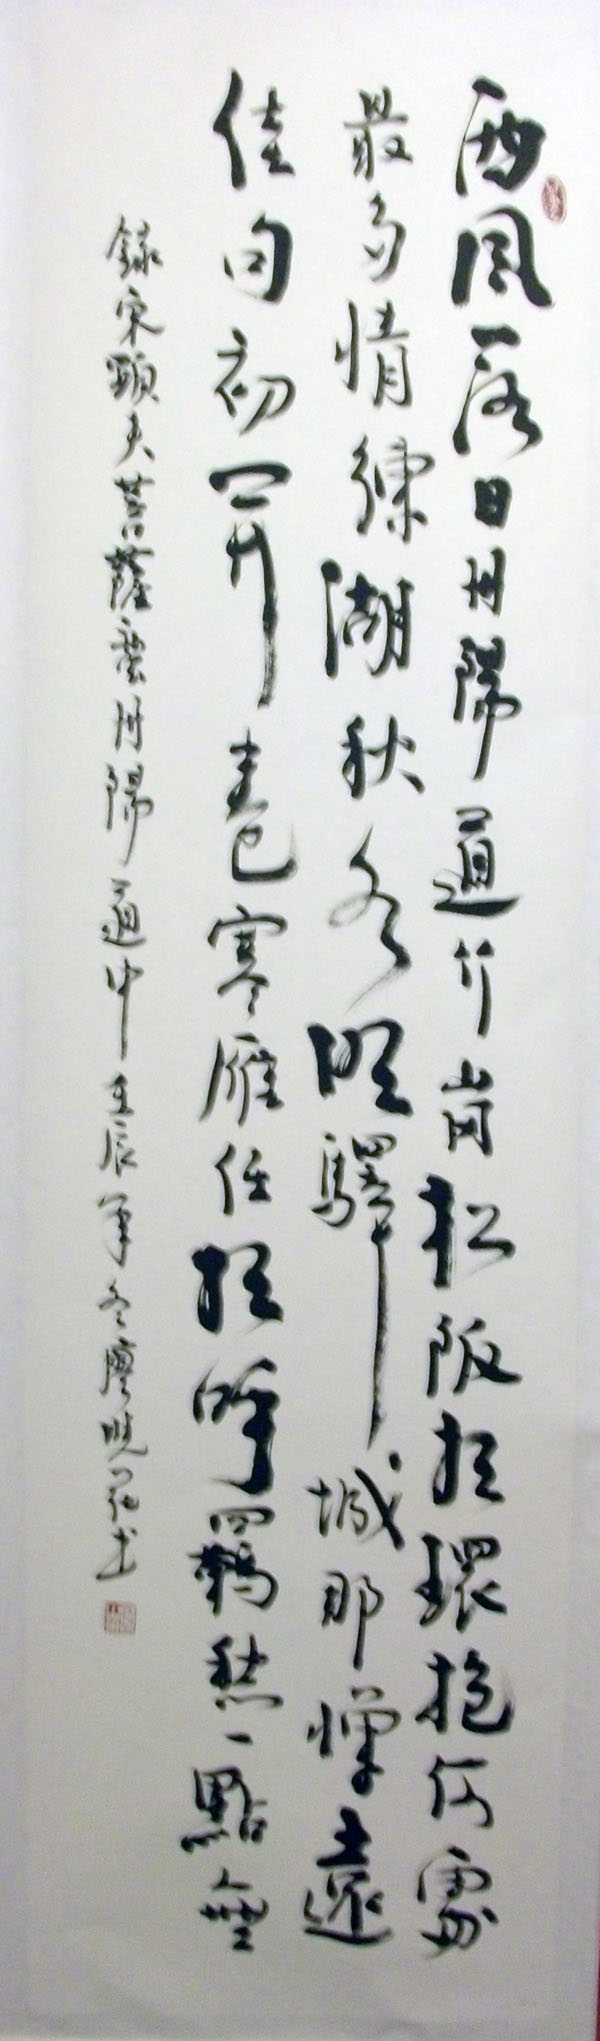 西風落日丹陽道竹崗松阪相環抱何處
最多情練湖秋水明驛城那憚遠
佳句初開卷寒雁任相呼羈愁一點無
錄宋顯夫菩薩蠻丹陽道中壬辰年冬廖曉書